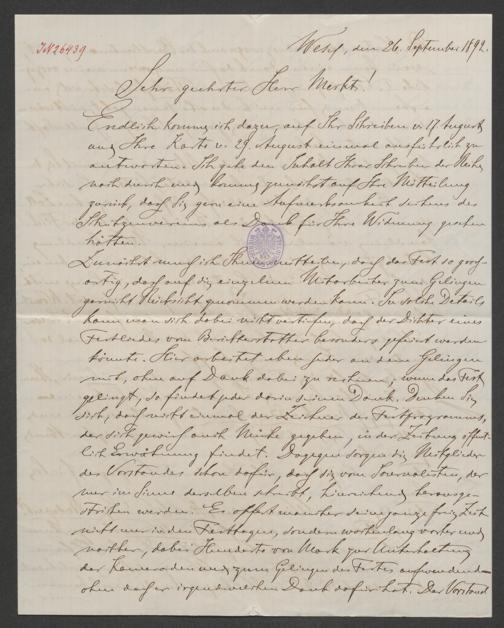 JN 26439
Wesel, den 26. September 1892.
Sehr geehrter Herr Merkt!
Endlich komme ich dazu, auf Ihr Schreiben v. 17 August
und Ihre Karte v. 29. August einmal ausführlich zu
antworten. Ich gehe den Inhalt Ihres Schreibens der Reihe
nach durch und komme zunächst auf Ihre Mitteilung
zurück, daß Sie gern eine Aufmerksamkeit seitens des
Schützenvereins als Dank für Ihre Widmung gesehen
hätten.
Zunächst muß ich Ihnen mitteilen, daß das Fest so groß-
artig, daß auf die einzelnen Mitarbeiter zum Gelingen
garnicht Rücksicht genommen werden kann. In solche Details
kann man sich dabei nicht vertiefen, daß der Dichter eines
Festliedes vom Berichterstatter besonders gefeiert werden
könnte. Hier arbeitet eben jeder an dem Gelingen
mit, ohne auf Dank dabei zu rechnen; wenn das Fest
gelingt, so findet jeder darin seinen Dank. Denken Sie
sich, daß nicht einmal der Zeichner des Festprogramms,
der sich gewiß auch Mühe gegeben, in der Zeitung öffent-
lich Erwähnung findet. Dagegen sorgen die Mitglieder
des Vorstandes schon dafür, daß sie vom Journalisten, der
nur im Sinne derselben schreibt, hinreichend herausge-
strichen werden. Es opfert mancher seine ganze freie Zeit
nicht nur in den Festtagen, sondern wochenlang vorher und
nachher, dabei Hunderte von Mark zur Unterhaltung
der Kameraden und zum Gelingen des Festes aufwendend
ohne daß er irgendwelchen Dank dafür hat. Der Vorstand